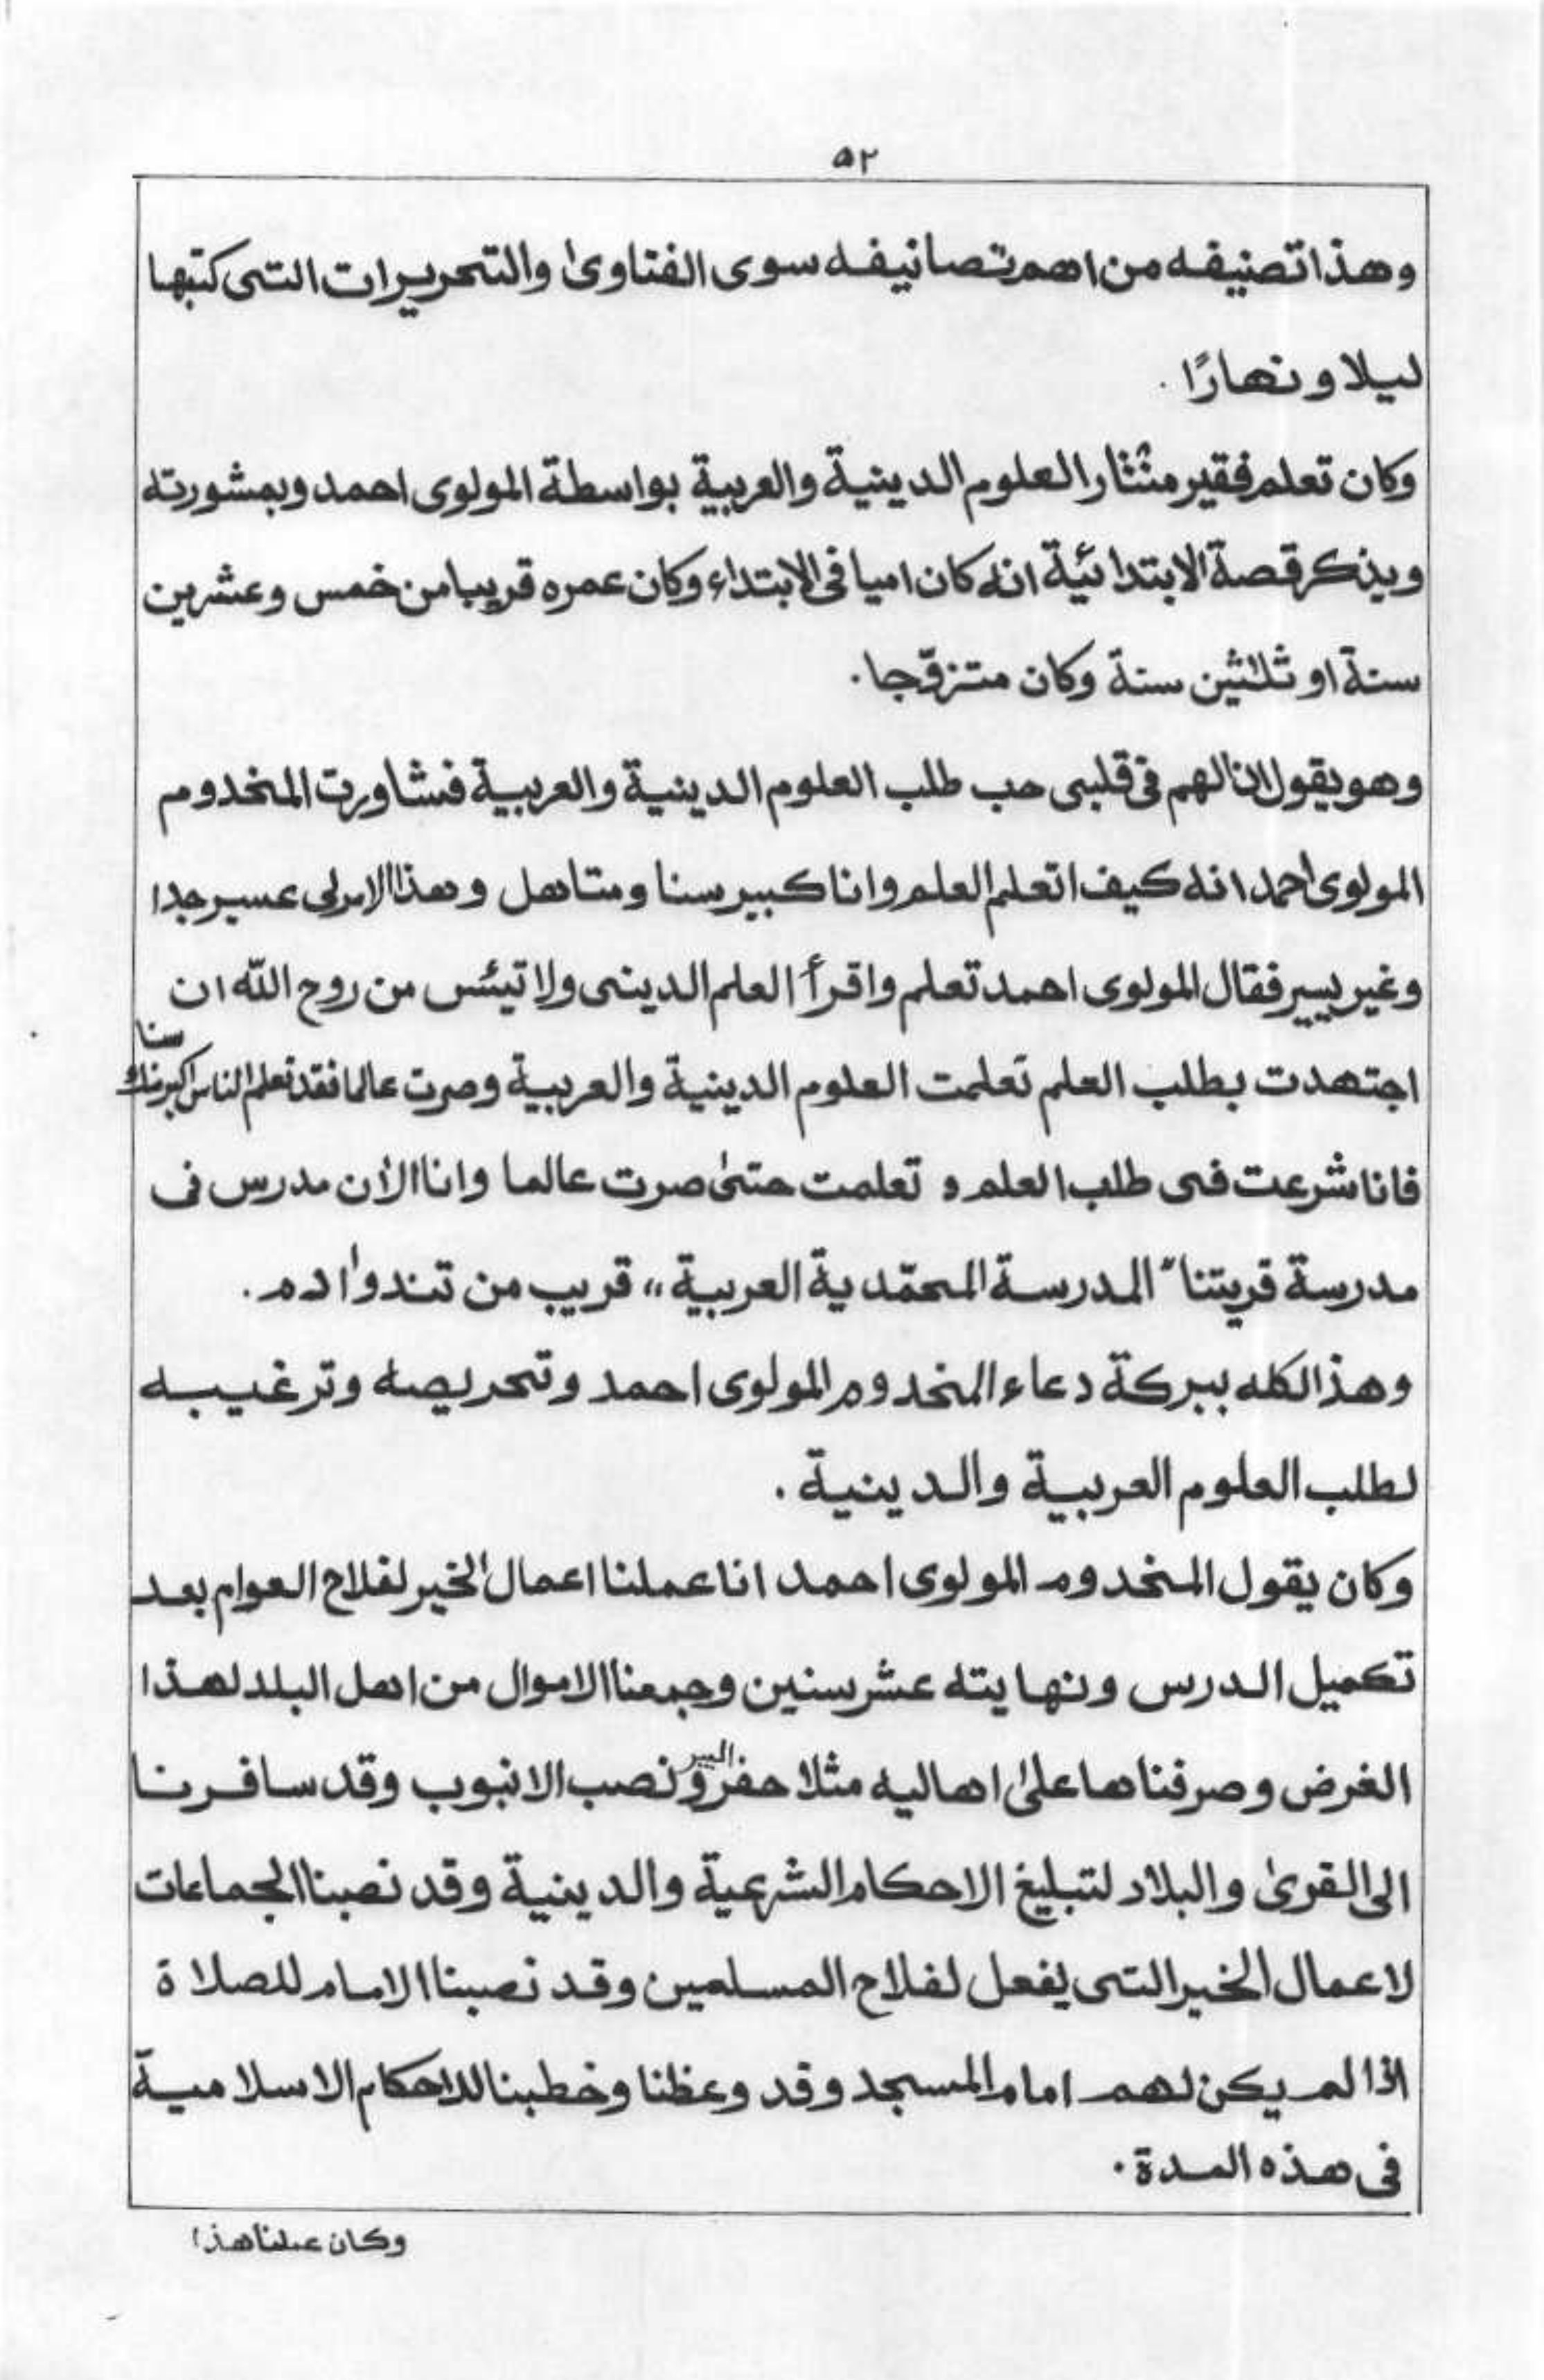 ٥٢
وهذا تصنيفه من اهم تصانيفه سوى الفتاوىٰ والتحريرات التى كتبها
ليلا و نهارًا .
وكان تعلم فقير مٹٹار العلوم الدينية والعربية بواسطة المولوى احمد وبمشورته
ويذكر قصة الابتدائية انه كان اميا فى الابتداء وكان عمره قريبا من خمس وعشرين
سنة او ثلٰثين سنة وكان متزوّجا .
وهو يقول ان الهم فى قلبى حب طلب العلوم الدينية والعربية فشاورت المخدوم
المولوى احمد انه كيف اتعلم العلم وانا كبير سنا ومتاهل وهذا الامر لى عسير جدا
وغير يسير فقال المولوى احمد تعلم واقرأ العلم الدينى ولا تيئس من روح اللّٰه ان
اجتهدت بطلب العلم تعلمت العلوم الدينية والعربية وصرت عالما فقد تعلم الناس اكبر منك سنا
فانا شرعت فى طلب العلم و تعلمت حتىٰ صرت عالما وانا الاٰن مدرس فى
مدرسة قريتنا "المدرسة المحمّدية العربية" قريب من تندو اٰدم .
وهذا كله ببركة دعاء المخدوم المولوى احمد وتحريصه وترغيبه
لطلب العلوم العربية والدينية .
وكان يقول المخدوم المولوى احمد انا عملنا اعمال الخير لفلاح العوام بعد
تكميل الدرس ونهايته عشر سنين وجمعنا الاموال من اهل البلد لهذا
الغرض وصرفناها علىٰ اهاليه مثلا حفر البير و نصب الانبوب وقد سافرنا
الى القرىٰ والبلاد لتبليغ الاحكام الشرعية والدينية وقد نصبنا الجماعات
لاعمال الخير التى يفعل لفلاح المسلمين وقد نصبنا الامام للصلاة
اذا لم يكن لهم امام المسجد وقد وعظنا وخطبنا للاحكام الاسلامية
فى هذه المدة .
وكان عملنا هذا